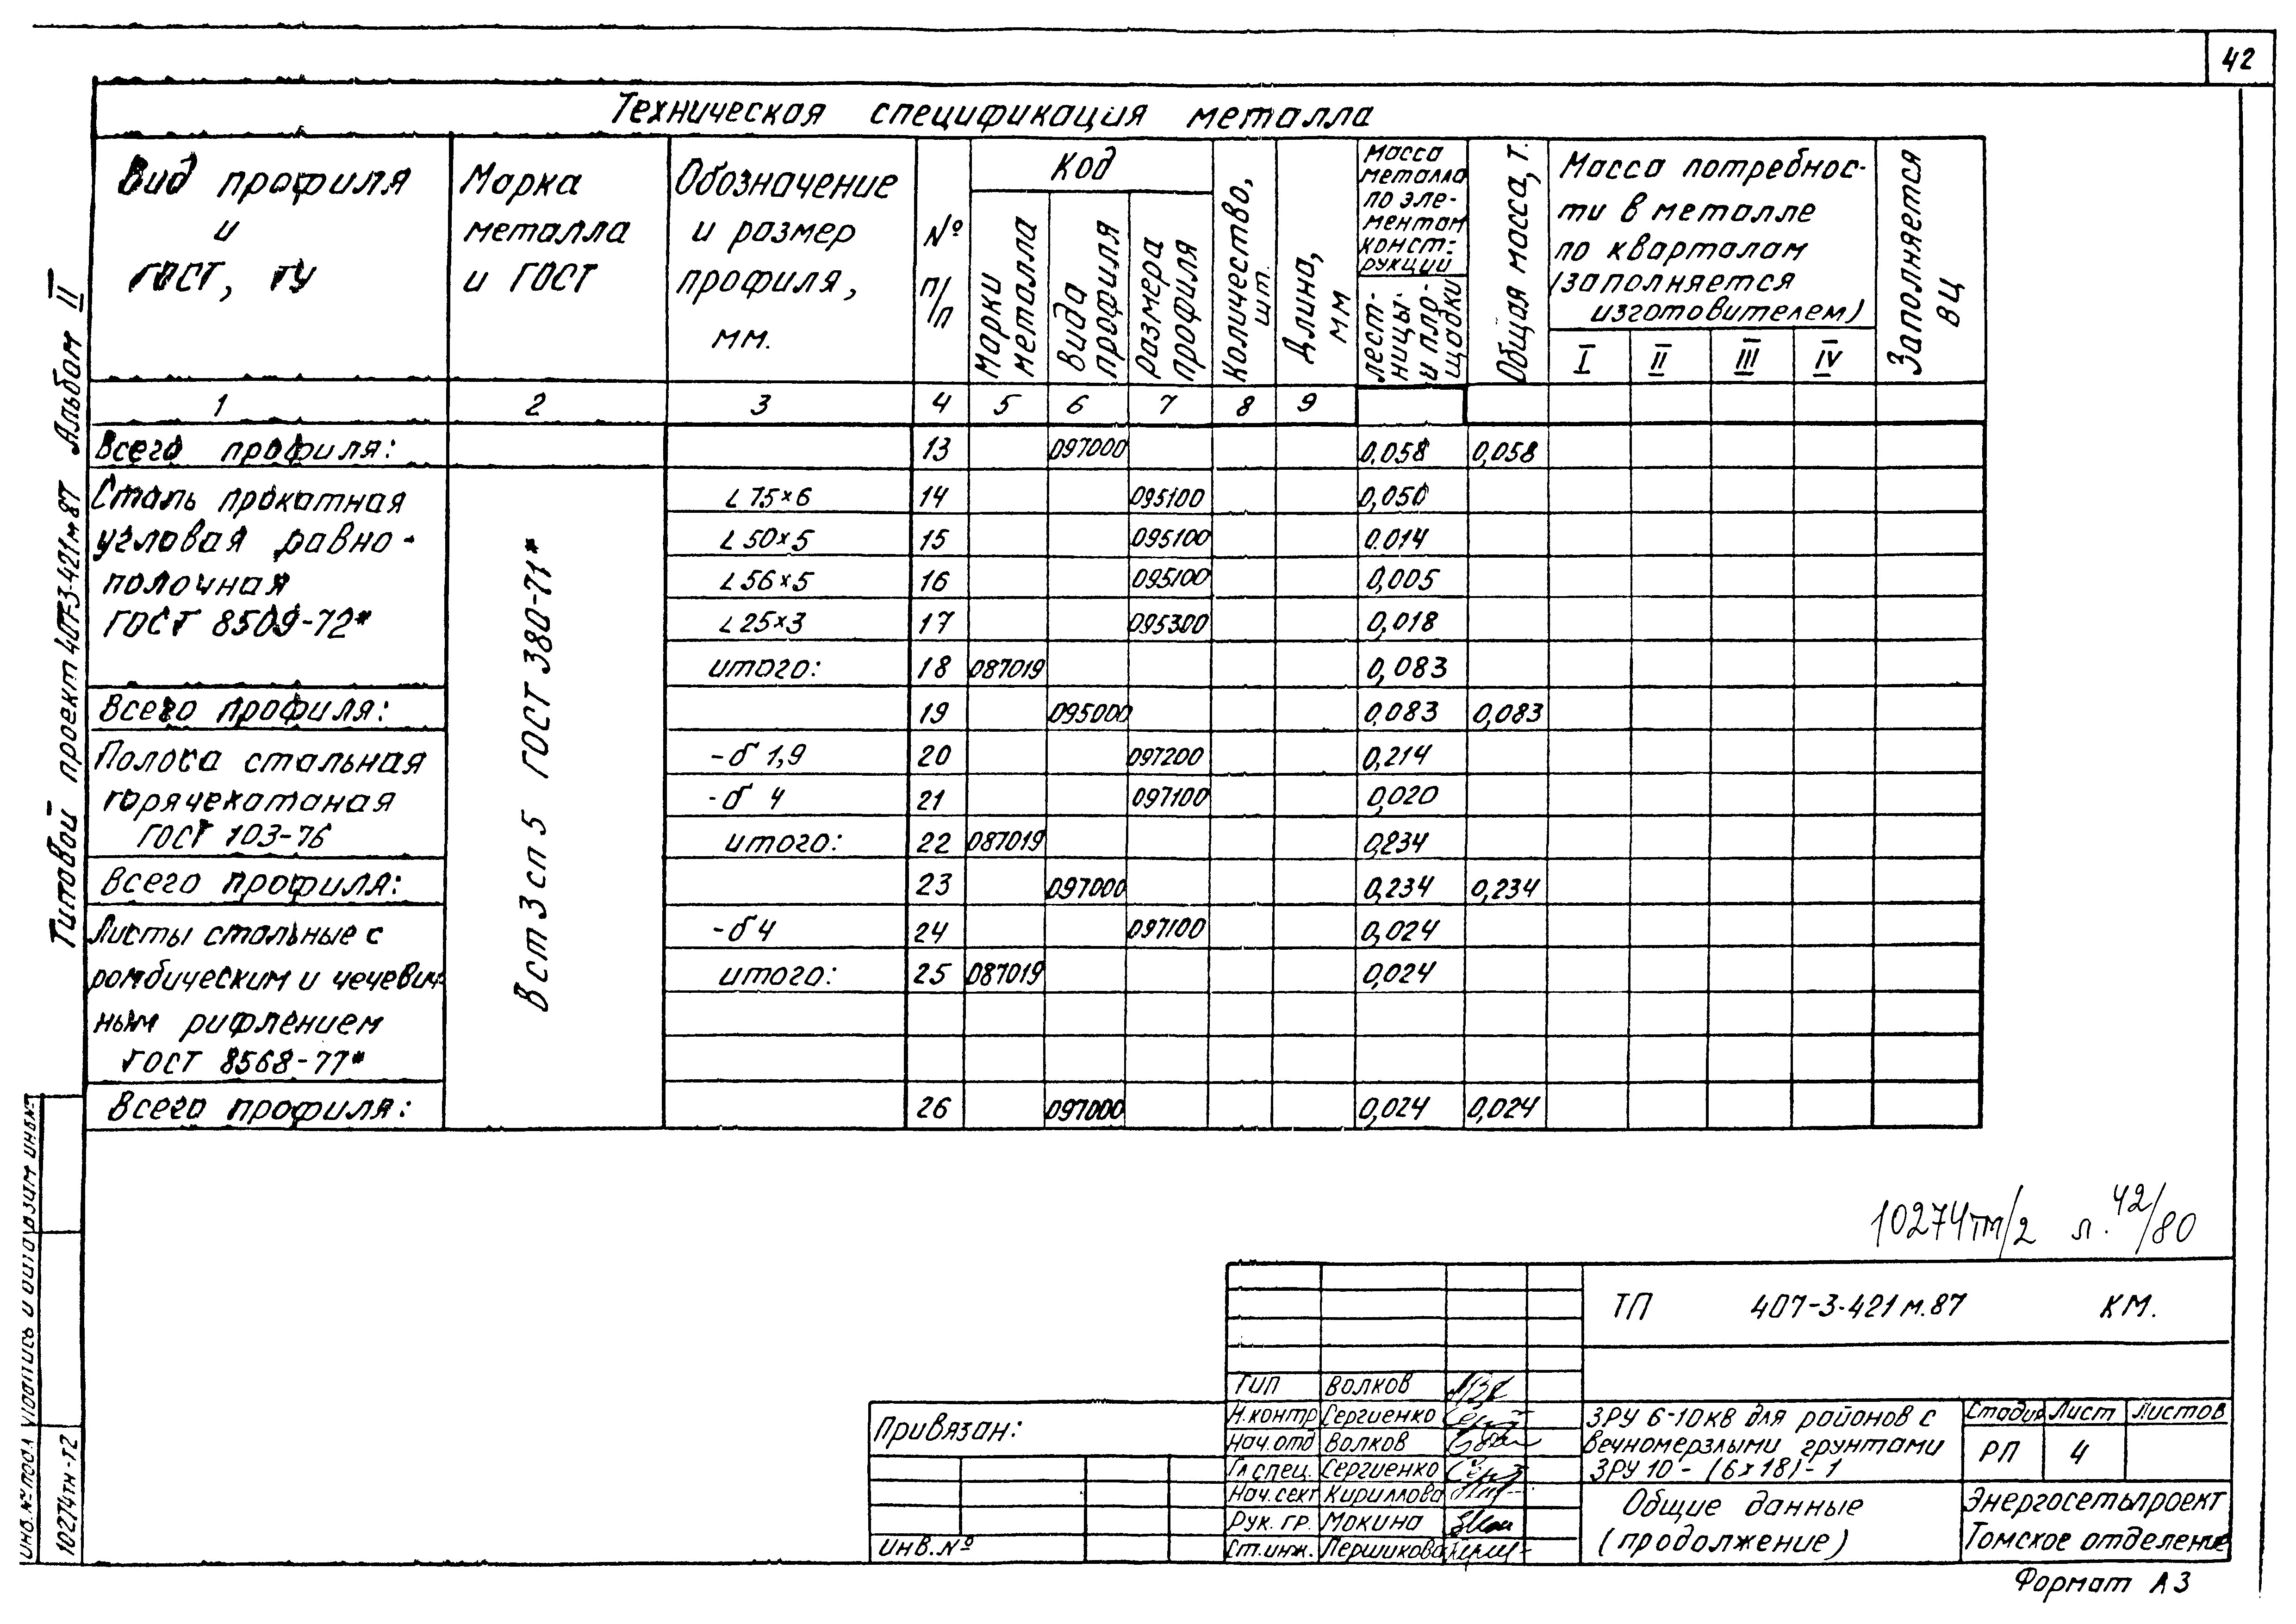 42
Техническая спецификация металла
Вид профиля и ГОСТ, ТУ
Марка металла и ГОСТ
Обозначение и размер профиля, мм.
№ п/п
Код
Марки металла
Вида профиля
Размера профиля
Количество, шт.
Длина, мм
Масса металла по элементам конструкций
лестницы и площадки
Общая масса, т.
Масса потребности в металле по кварталам (заполняется изготовителем)
I II III IV
Заполняется ВЦ
1 2 3 4 5 6 7 8 9
Всего профиля: 13 097000 0,058 0,058
Сталь прокатная угловая равнополочная ГОСТ 8509-72*
В ст 3 сп 5 ГОСТ 380-71*
L 75×6 14 095100 0,050
L 50×5 15 095100 0.014
L 56×5 16 095100 0,005
L 25×3 17 095300 0,018
итого: 18 087019 0,083
Всего профиля: 19 095000 0,083 0,083
Полоса стальная горячекатаная ГОСТ 103-76
-б 1,9 20 097200 0,214
-б 4 21 097100 0,020
итого: 22 087019 0,234
Всего профиля: 23 097000 0,234 0,234
Листы стальные с ромбическим и чечевич-
ным рифлением ГОСТ 8568-77*
-б 4 24 097100 0,024
итого: 25 087019 0,024
Всего профиля: 26 097000 0,024 0,024
Типовой проект 407-3-421м.87 Альбом II
10274тм/2 л. 42/80
ТП 407-3-421м.87 КМ.
Привязан:
Инв.№
Гип Волков
Н.контр Сергиенко
Нач.отд Волков
Гл спец. Сергиенко
Нач.сект Кириллова
Рук. гр. Мокина
Ст.инж. Першикова
ЗРУ 6-10кв для районов с
вечномерзлыми грунтами
ЗРУ 10-(6×18)-1
Стадия Лист Листов
РП 4
Общие данные
(продолжение)
Энергосетьпроект
Томское отделение
Формат А3
Инв.№ подл Подпись и дата Взам инв.№
10274тм-т2